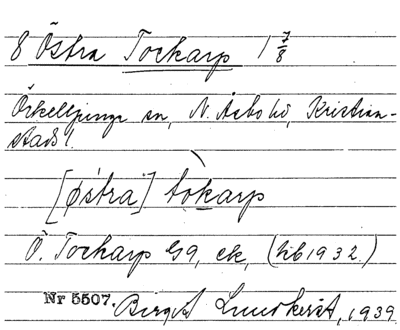 8 Östra Tockarp 1 7/8
Örkelljunga sn, N. Åsbo hd, Kristian-
stads l.
[østra] tokarp
Ö. Tockarp by, ek, (hb 1932.)
Nr 5507. Birgit Lundkvist, 1939